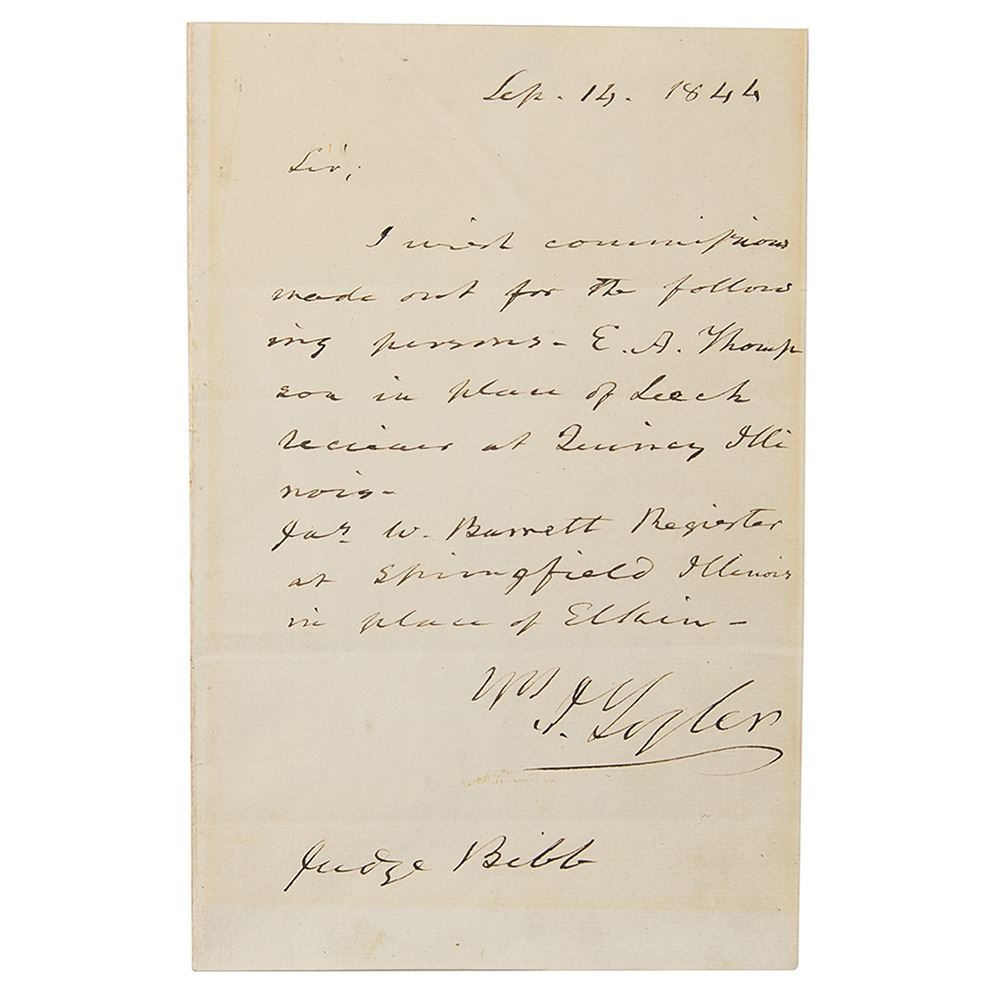 Sep. 14. 1844
Sir;
I wish commissions
made out for the follow
ing persons - E. A. Thomp
son in place of Leech
reciever at Quincy Illi
nois -
Jas. W. Barrett Register
at Springfield Illinois
in place of Elkin -
Yrs
J. Tyler
Judge Bibb